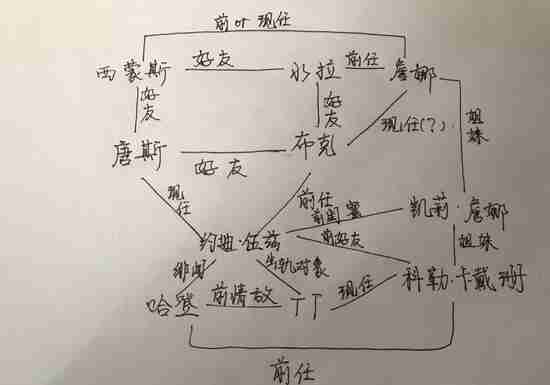 前or 现任
西蒙斯 好友 水拉 前任 詹娜
好友 好友 姐妹
唐斯 好友 布克 现任(?)
现任 前任
前闺蜜 凯莉·詹娜
约迪·伍兹 前好友 姐妹
绯闻 出轨对象 科勒·卡戴珊
哈登 前情敌 TT 现任
前任